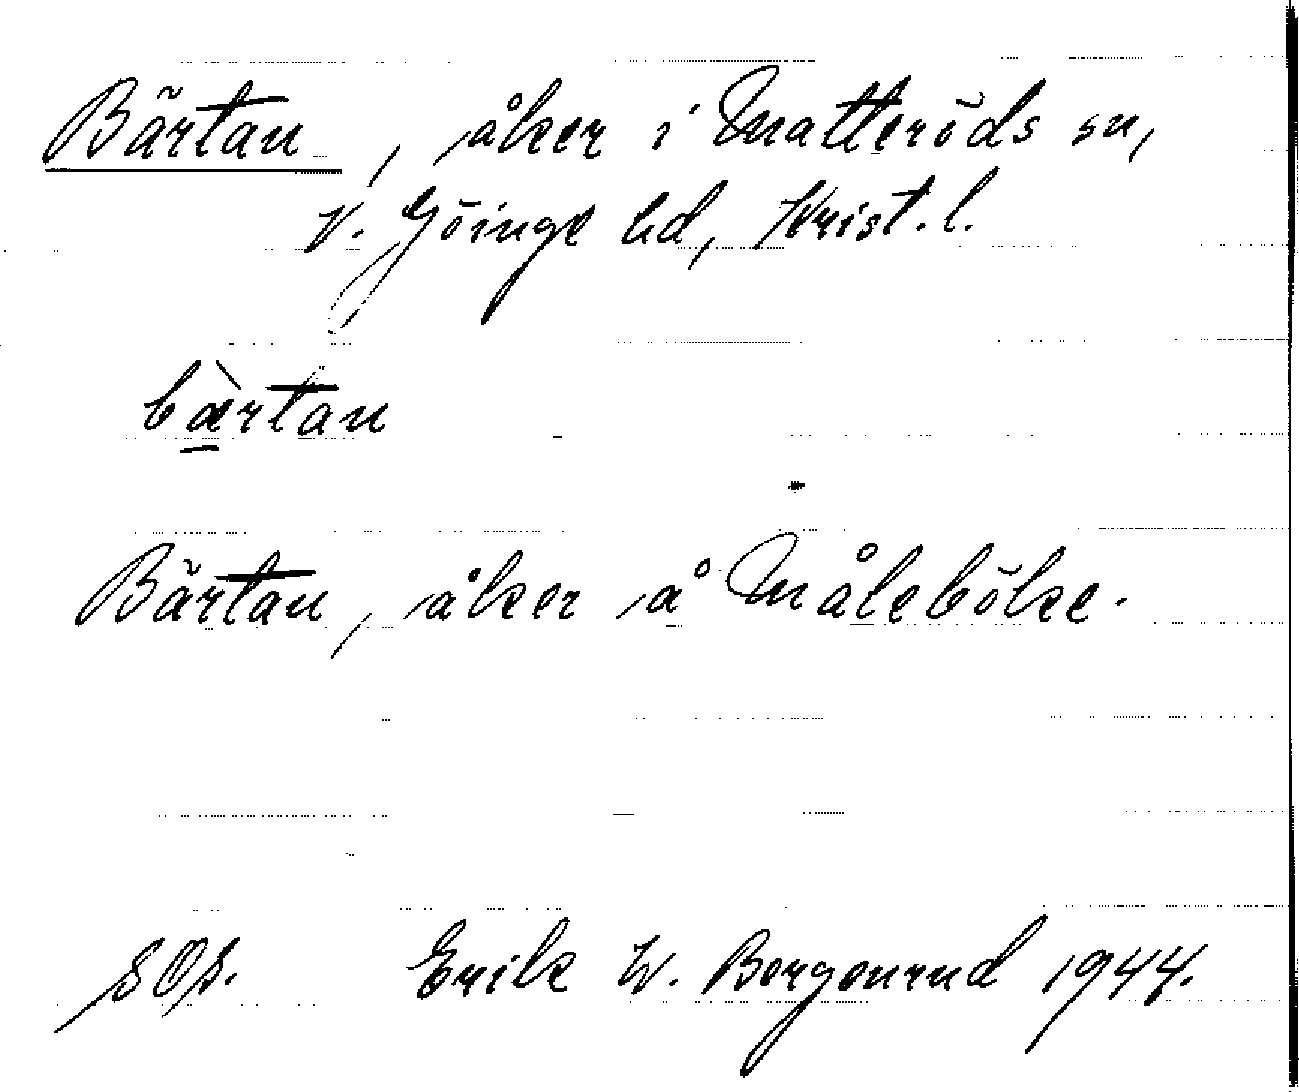 Bärtan, åker i Matteröds sn,
V. Göinge hd, Krist. l.
bæ̀rtan
Bärtan, åker å Måleböke.
Erik W. Borgenrud 1944.